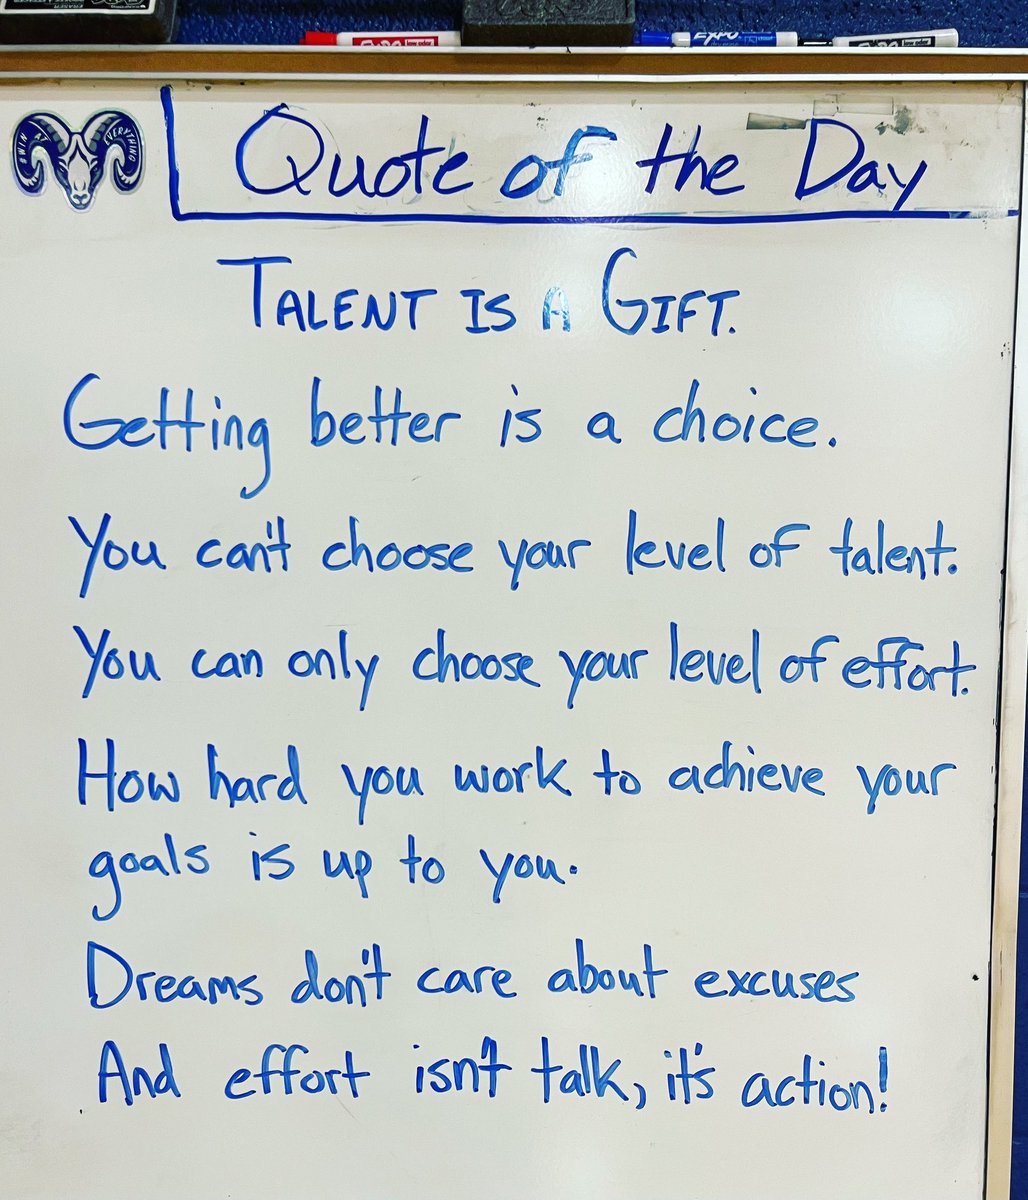 EXPO low odor
EXPO
EXPO low odor
#WIN AT EVERYTHING
Quote of the Day
TALENT IS A GIFT.
Getting better is a choice.
You can't choose your level of talent.
You can only choose your level of effort.
How hard you work to achieve your
goals is up to you.
Dreams don't care about excuses
And effort isn't talk, it's action!